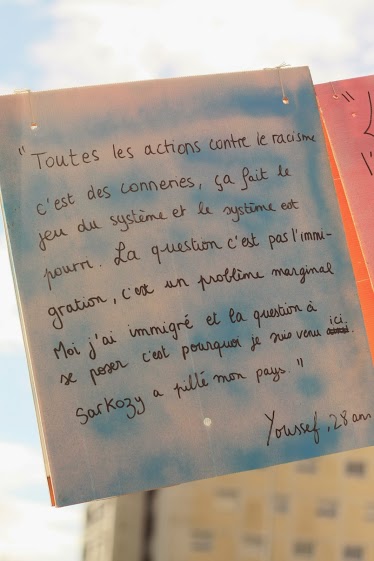 " Toutes les actions contre le racisme
c'est des conneries, ça fait le
jeu du système et le système est
pourri. La question c'est pas l'immi-
gration, c'est un problème marginal
Moi j'ai immigré et la question à
se poser c'est pourquoi je suis venu ici.
Sarkozy a pillé mon pays. "
Youssef, 28 ans